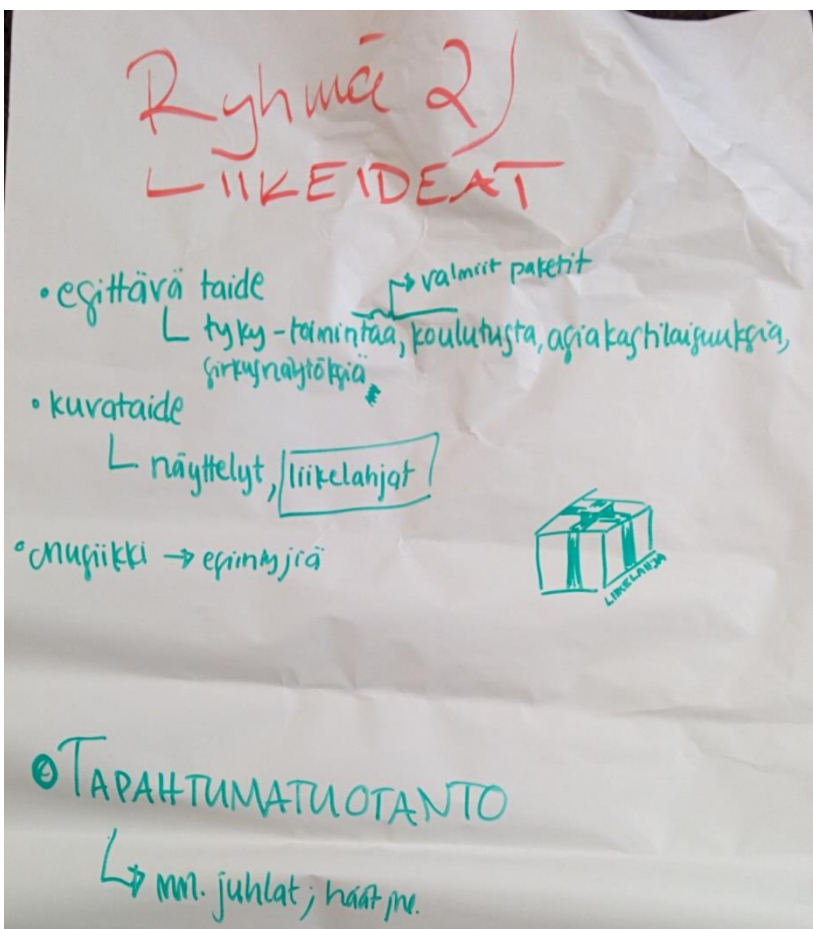 Ryhmä 2)
LIIKEIDEAT
• esittävä taide
→ valmiit paketit
tyky-toimintaa, koulutusta, asiakastilaisuuksia,
sirkusnäytöksiä
• kuvataide
näyttelyt, liikelahjat
• Musiikki → esiintyjiä
LIIKELAHJA
• TAPAHTUMATUOTANTO
↳ mm. juhlat, häät jne.